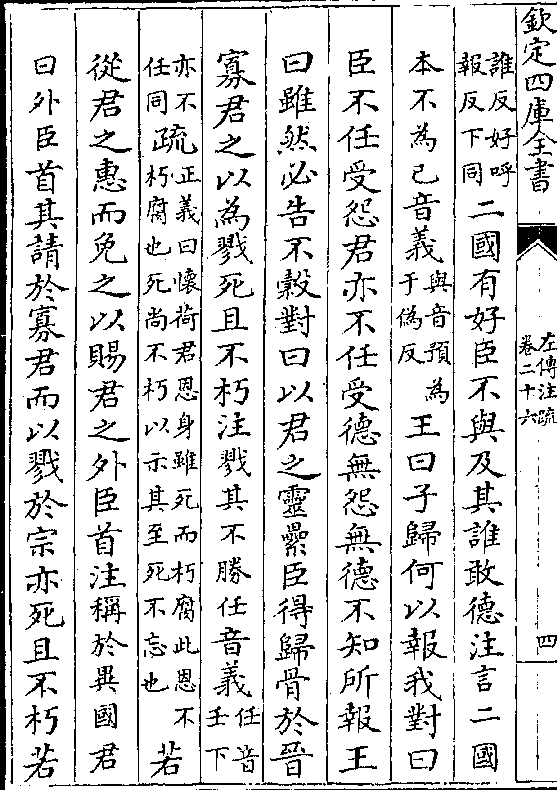 欽定四庫全書
左傳注疏
卷二十六
四
誰反好呼
報反下同
二國有好臣不與及其誰敢德注言二國
本不為己音義
與音預為
于偽反
王曰子歸何以報我對曰
臣不任受怨君亦不任受德無怨無德不知所報王
曰雖然必告不穀對曰以君之靈纍臣得歸骨於晉
寡君之以為戮死且不朽注戮其不勝任音義
任音
壬下
亦不
任同
疏
正義曰懷荷君恩身雖死而朽腐此恩不
朽腐也死尚不朽以示其至死不忘也
若
從君之惠而免之以賜君之外臣首注稱於異國君
曰外臣首其請於寡君而以戮於宗亦死且不朽若